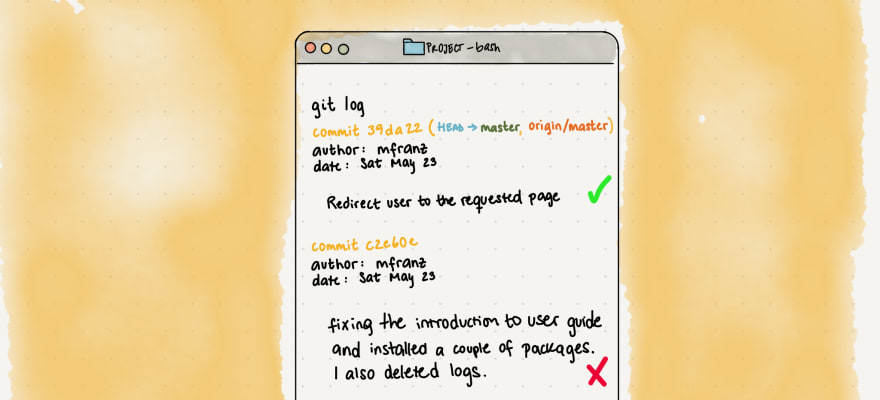 PROJECT - bash
git log
commit 39da22 (HEAD → master, origin/master)
author: mfranz
date: Sat May 23
Redirect user to the requested page
commit c2e60e
author: mfranz
date: Sat May 23
fixing the introduction to user guide
and installed a couple of packages.
I also deleted logs.